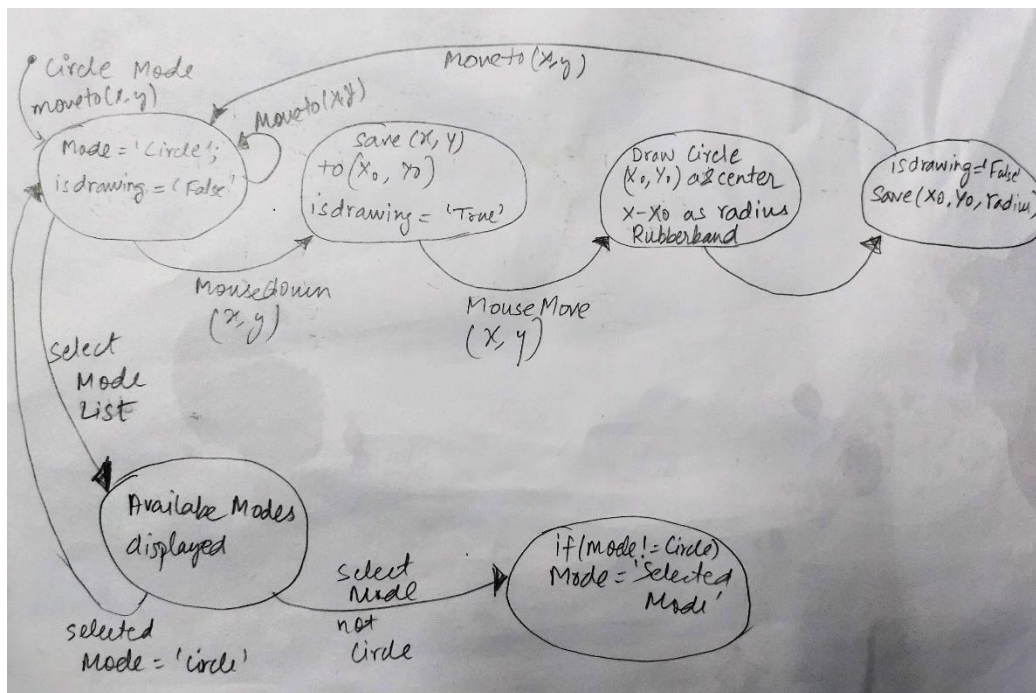 Circle Mode
moveto(x,y)
Moveto(x,y)
Moveto(x,y)
Mode = 'Circle';
isdrawing = 'False'
save (x, y)
to (x₀, y₀)
isdrawing = 'True'
Draw Circle
(x₀, y₀) as center
x-x₀ as radius
Rubberband
isdrawing='False'
Save(x₀, y₀, radius)
Mousedown
(x, y)
MouseMove
(x, y)
select
Mode
List
Availabe Modes
displayed
select
Mode
not
Circle
if(mode!=Circle)
Mode='Selected
Mode'
selected
Mode = 'circle'